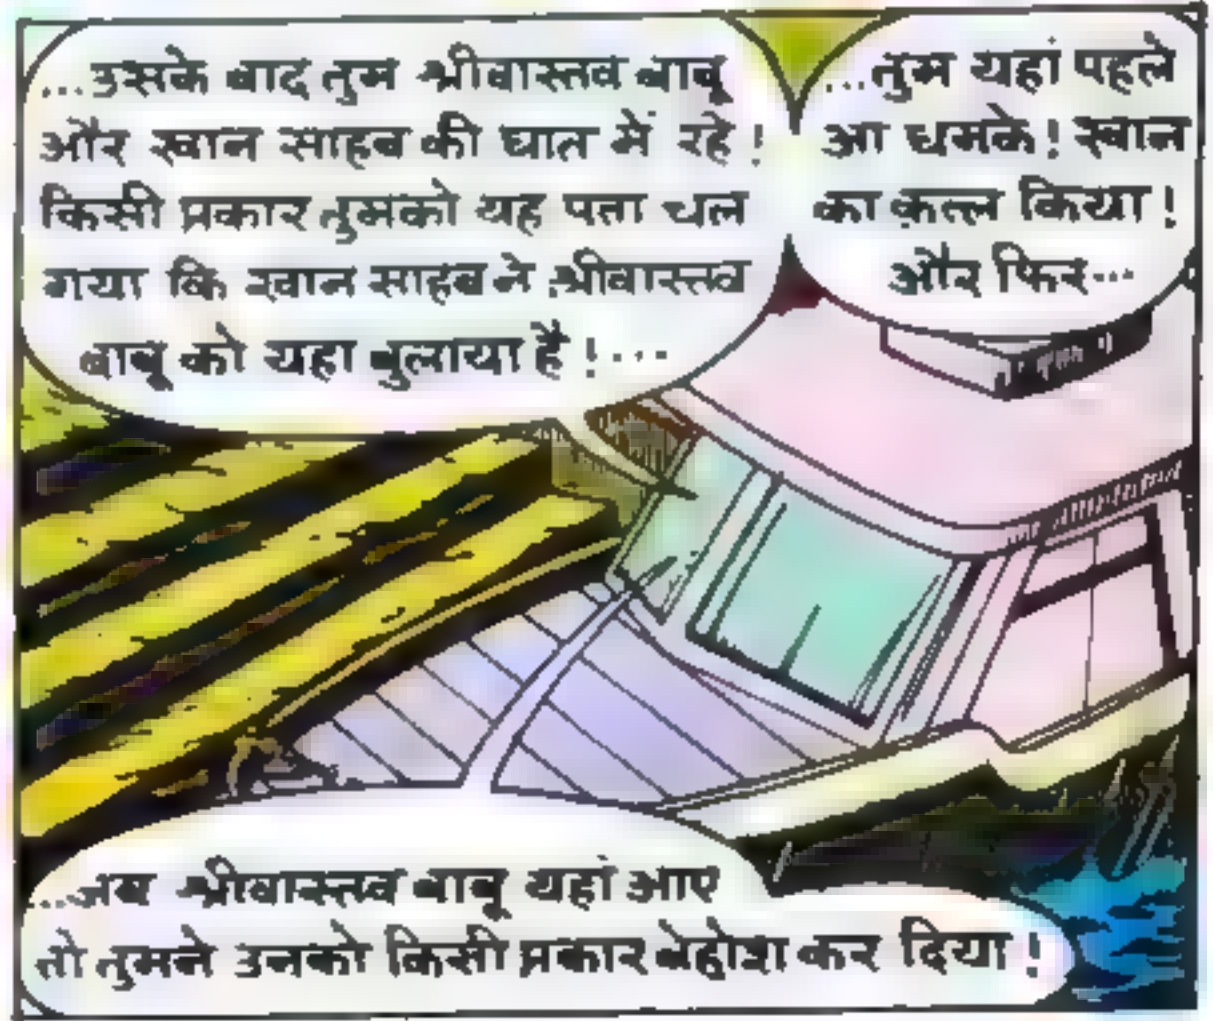 ...उसके बाद तुम श्रीवास्तव बाबू
और खान साहब की घात में रहे!
किसी प्रकार तुमको यह पता चल
गया कि खान साहब ने श्रीवास्तव
बाबू को यहा बुलाया है!...
...तुम यहां पहले
आ धमके! खान
का क़त्ल किया!
और फिर...
...जब श्रीवास्तव बाबू यहां आए
तो तुमने उनको किसी प्रकार बेहोश कर दिया!